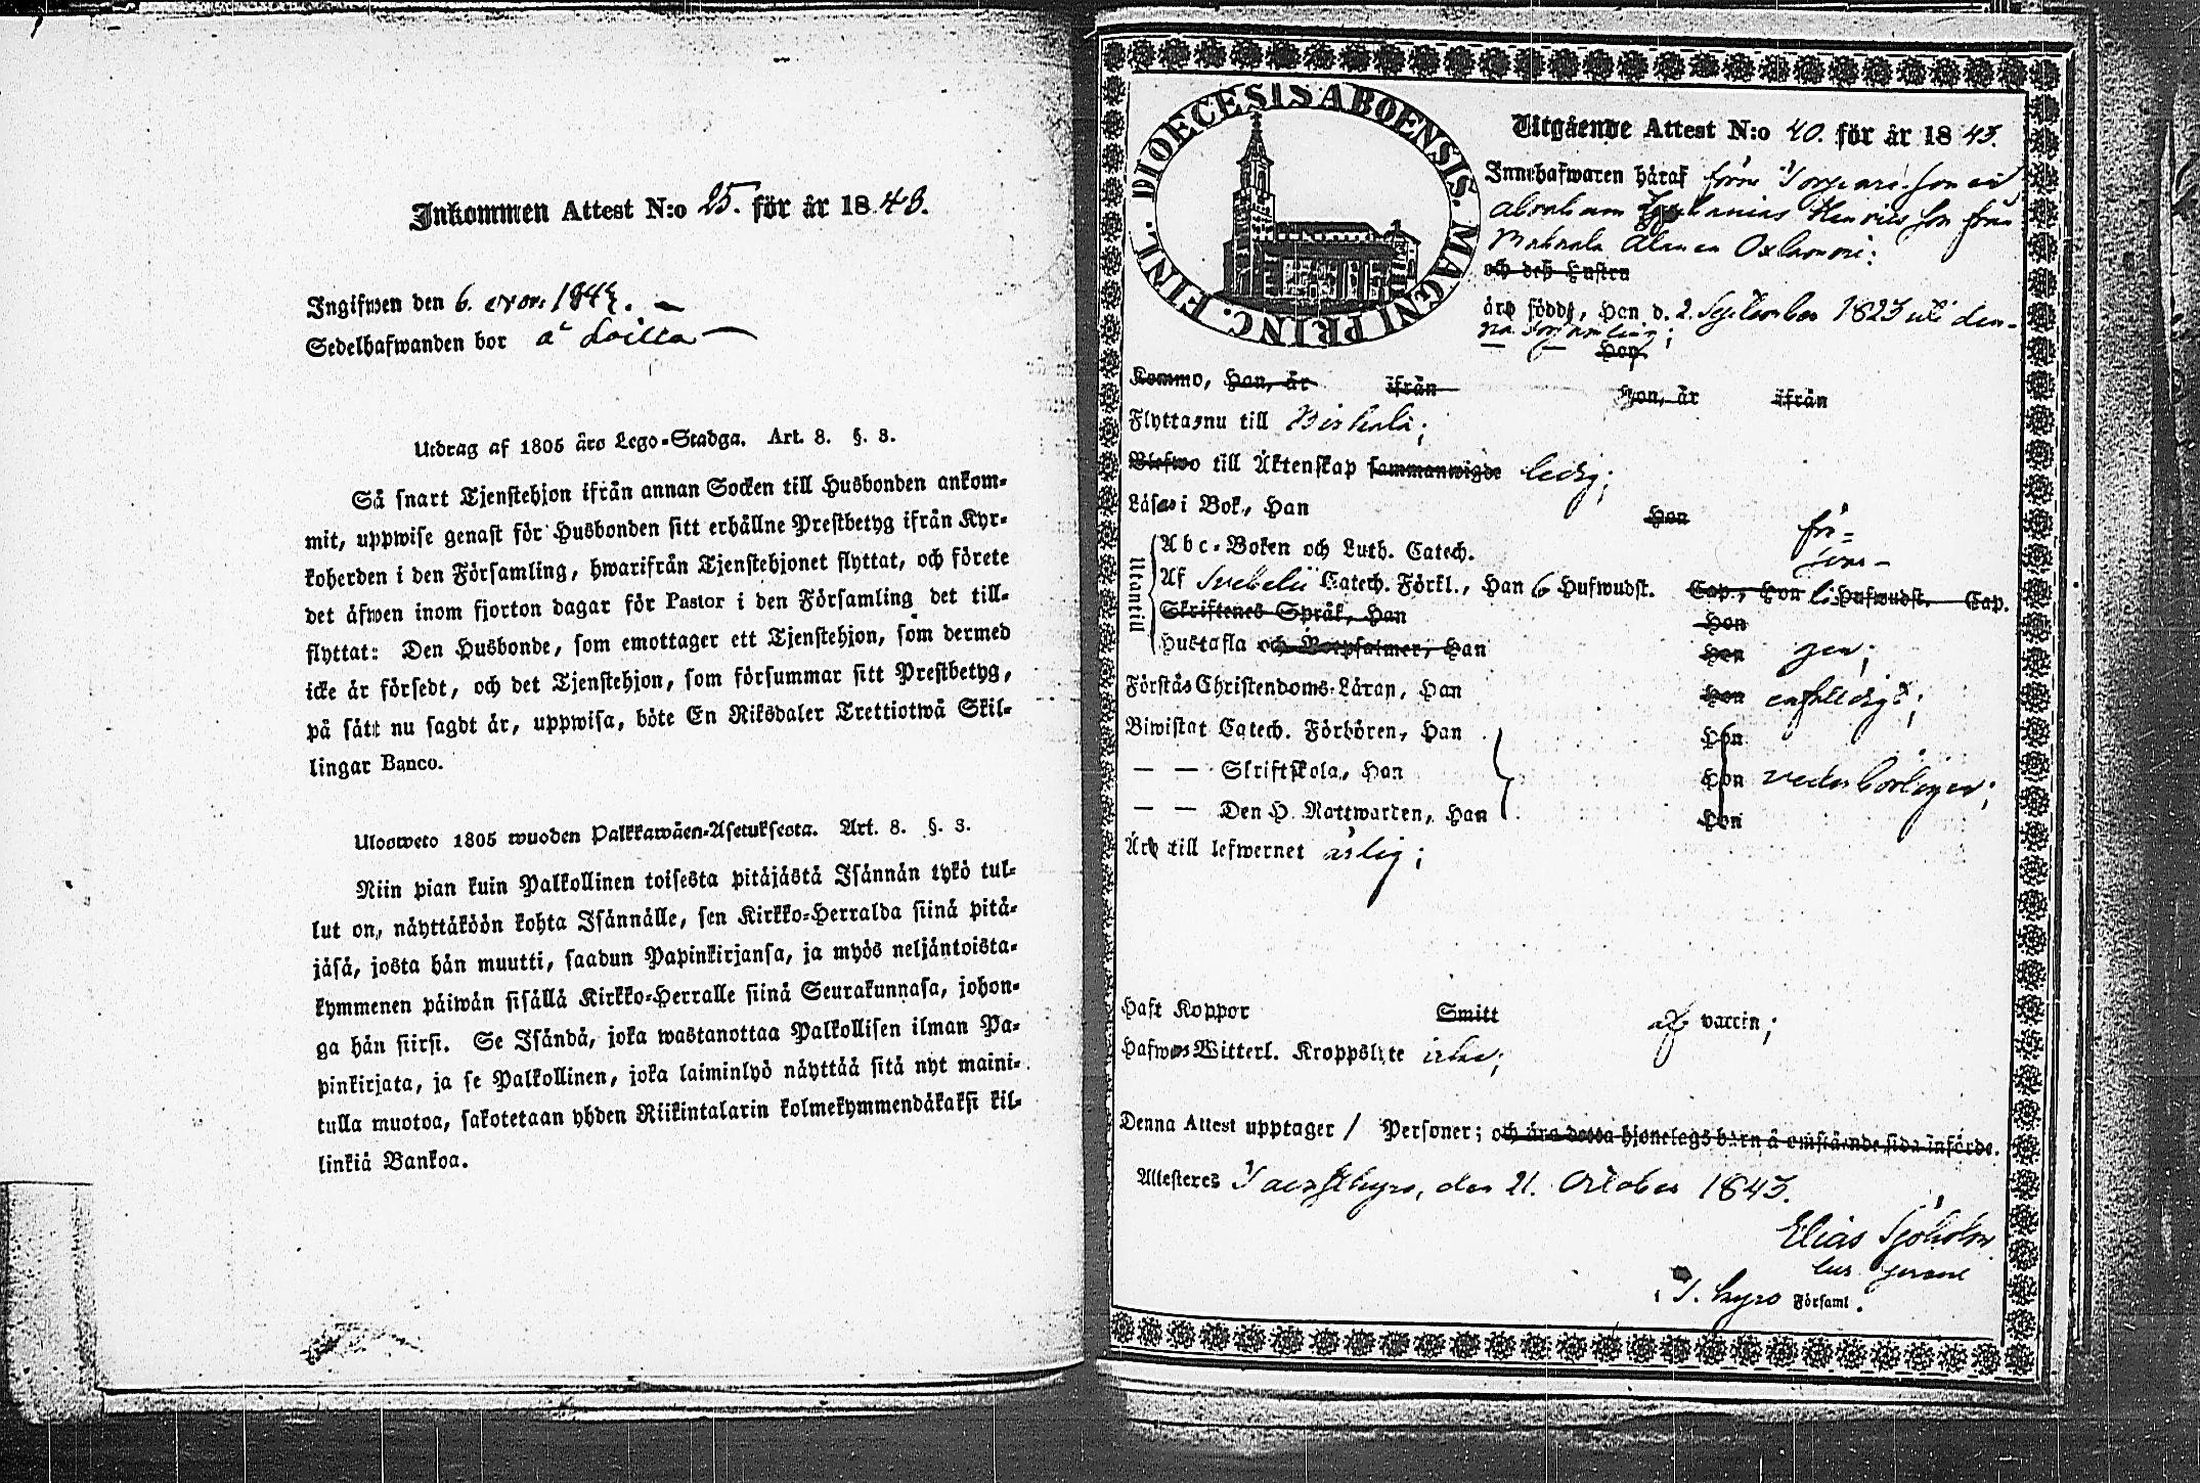 Inkommen Attest N:o 25. för år 1843.
Ingifwen den 6. 1843.
Sedelhafwanden bor å Loilla
Utdrag af 1805 års Lego-Stadga. Art. 8. §. 3.
Så snart Tjenstehjon ifrån annan Socken till Husbonden ankom-
mit, uppwise genast för Husbonden sitt erhållne Prestbetyg ifrån Kyr-
koherden i den Församling, hwarifrån Tjenstehjonet flyttat, och förete
det äfwen inom fjorton dagar för Pastor i den Församling det till-
flyttat: Den Husbonde, som emottager ett Tjenstehjon, som dermed
icke är försedt, och det Tjenstehjon, som försummar sitt Prestbetyg,
på sätt nu sagdt är, uppwisa, böte En Riksdaler Trettiotwå Skil-
lingar Banco.
Ulosweto 1805 wuoden Palkkawäen-Asetuksesta. Art. 8. §. 3.
Niin pian kuin Palkollinen toisesta pitäjästä Isännän tykö tul-
lut on, näyttäköön kohta Isännälle, sen Kirkko-Herralda siinä pitä-
jäsä, josta hän muutti, saadun Papinkirjansa, ja myös neljäntoista-
kymmenen päiwän sisällä Kirkko-Herralle siinä Seurakunnasa, johon-
ga hän siirsi. Se Isändä, joka wastanottaa Palkollisen ilman Pa-
pinkirjata, ja se Palkollinen, joka laiminlyö näyttää sitä nyt maini-
tulla muotoa, sakotetaan yhden Riikintalarin kolmekymmendäkaksi kil-
linkiä Bankoa.
DIOECESIS ABOENSIS. MAGNI PRINC. FINL.
Utgående Attest N:o 40. för år 1843.
Innehafwaren häraf förre Torpare sonen
Abraham Henricsson från
Oxhamari:
och deß Hustru
äro födde, Han d. 2. September 1823 uti den-
na Församling;
Hon
Kommo, Han, år ifrån Hon, år ifrån
Flytta nu till Birkala;
Blefwo till Äktenskap sammanwigde ledig;
Läsa i Bok, Han Hon för-
Utantill
Abc-Boken och Luth. Catech. sam-
Af Svebelii Catech. Förkl., Han 6 Hufwudst. Cap., Hon Hufwudst. Cap.
Skriftenes Språk, Han Hon
Hustafla och Botpsalmer, Han Hon gen;
Förstå Christendoms-Läran, Han Hon enfaldigt;
Biwistat Catech. Förhören, Han Hon
— — Skriftskola, Han Hon vederbörligen;
— — Den H. Nattwarden, Han Hon
Äro till lefwernet ärlig;
Haft Koppor Smitt af vaccin;
Hafwa Witterl. Kroppslyte icke;
Denna Attest upptager 1 Personer; och äro detta hjonelags barn å omstående sida införde.
Attesteres Tavastkyro, den 21. October 1843.
Elias Sjöholm
i T. kyro Församl.